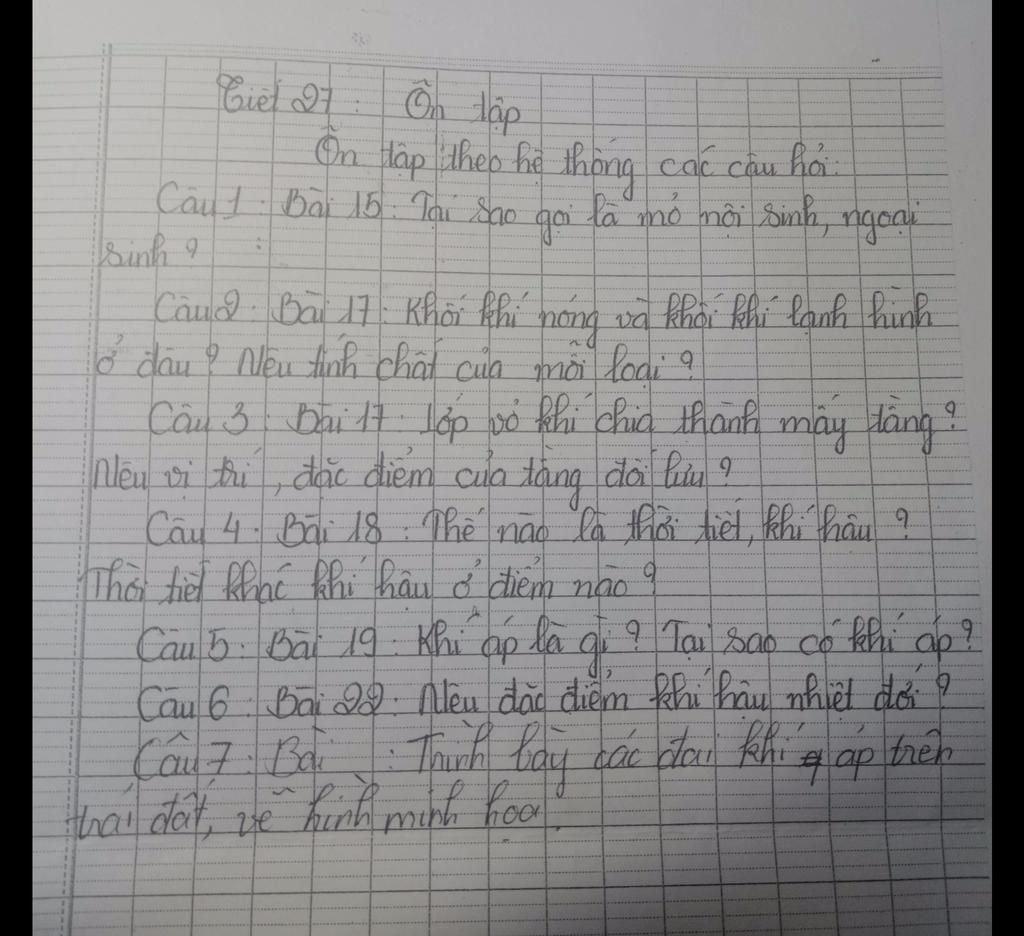 Tiết 27: Ôn tập
Ôn tập theo hệ thống các câu hỏi:
Câu 1: Bài 15: Tại sao gọi là mỏ nội sinh, ngoại
sinh?
Câu 2: Bài 17: Khối khí nóng và khối khí lạnh hình
ở đâu? Nêu tính chất của mỗi loại?
Câu 3: Bài 17: Lớp vỏ khí chia thành mấy tầng?
Nêu vị trí, đặc điểm của tầng đối lưu?
Câu 4: Bài 18: Thế nào là thời tiết, khí hậu?
Thời tiết khác khí hậu ở điểm nào?
Câu 5: Bài 19: Khí áp là gì? Tại sao có khí áp?
Câu 6: Bài 22: Nêu đặc điểm khí hậu nhiệt đới?
Câu 7: Bài : Trình bày các đai khí áp trên
trái đất, vẽ hình minh hoạ